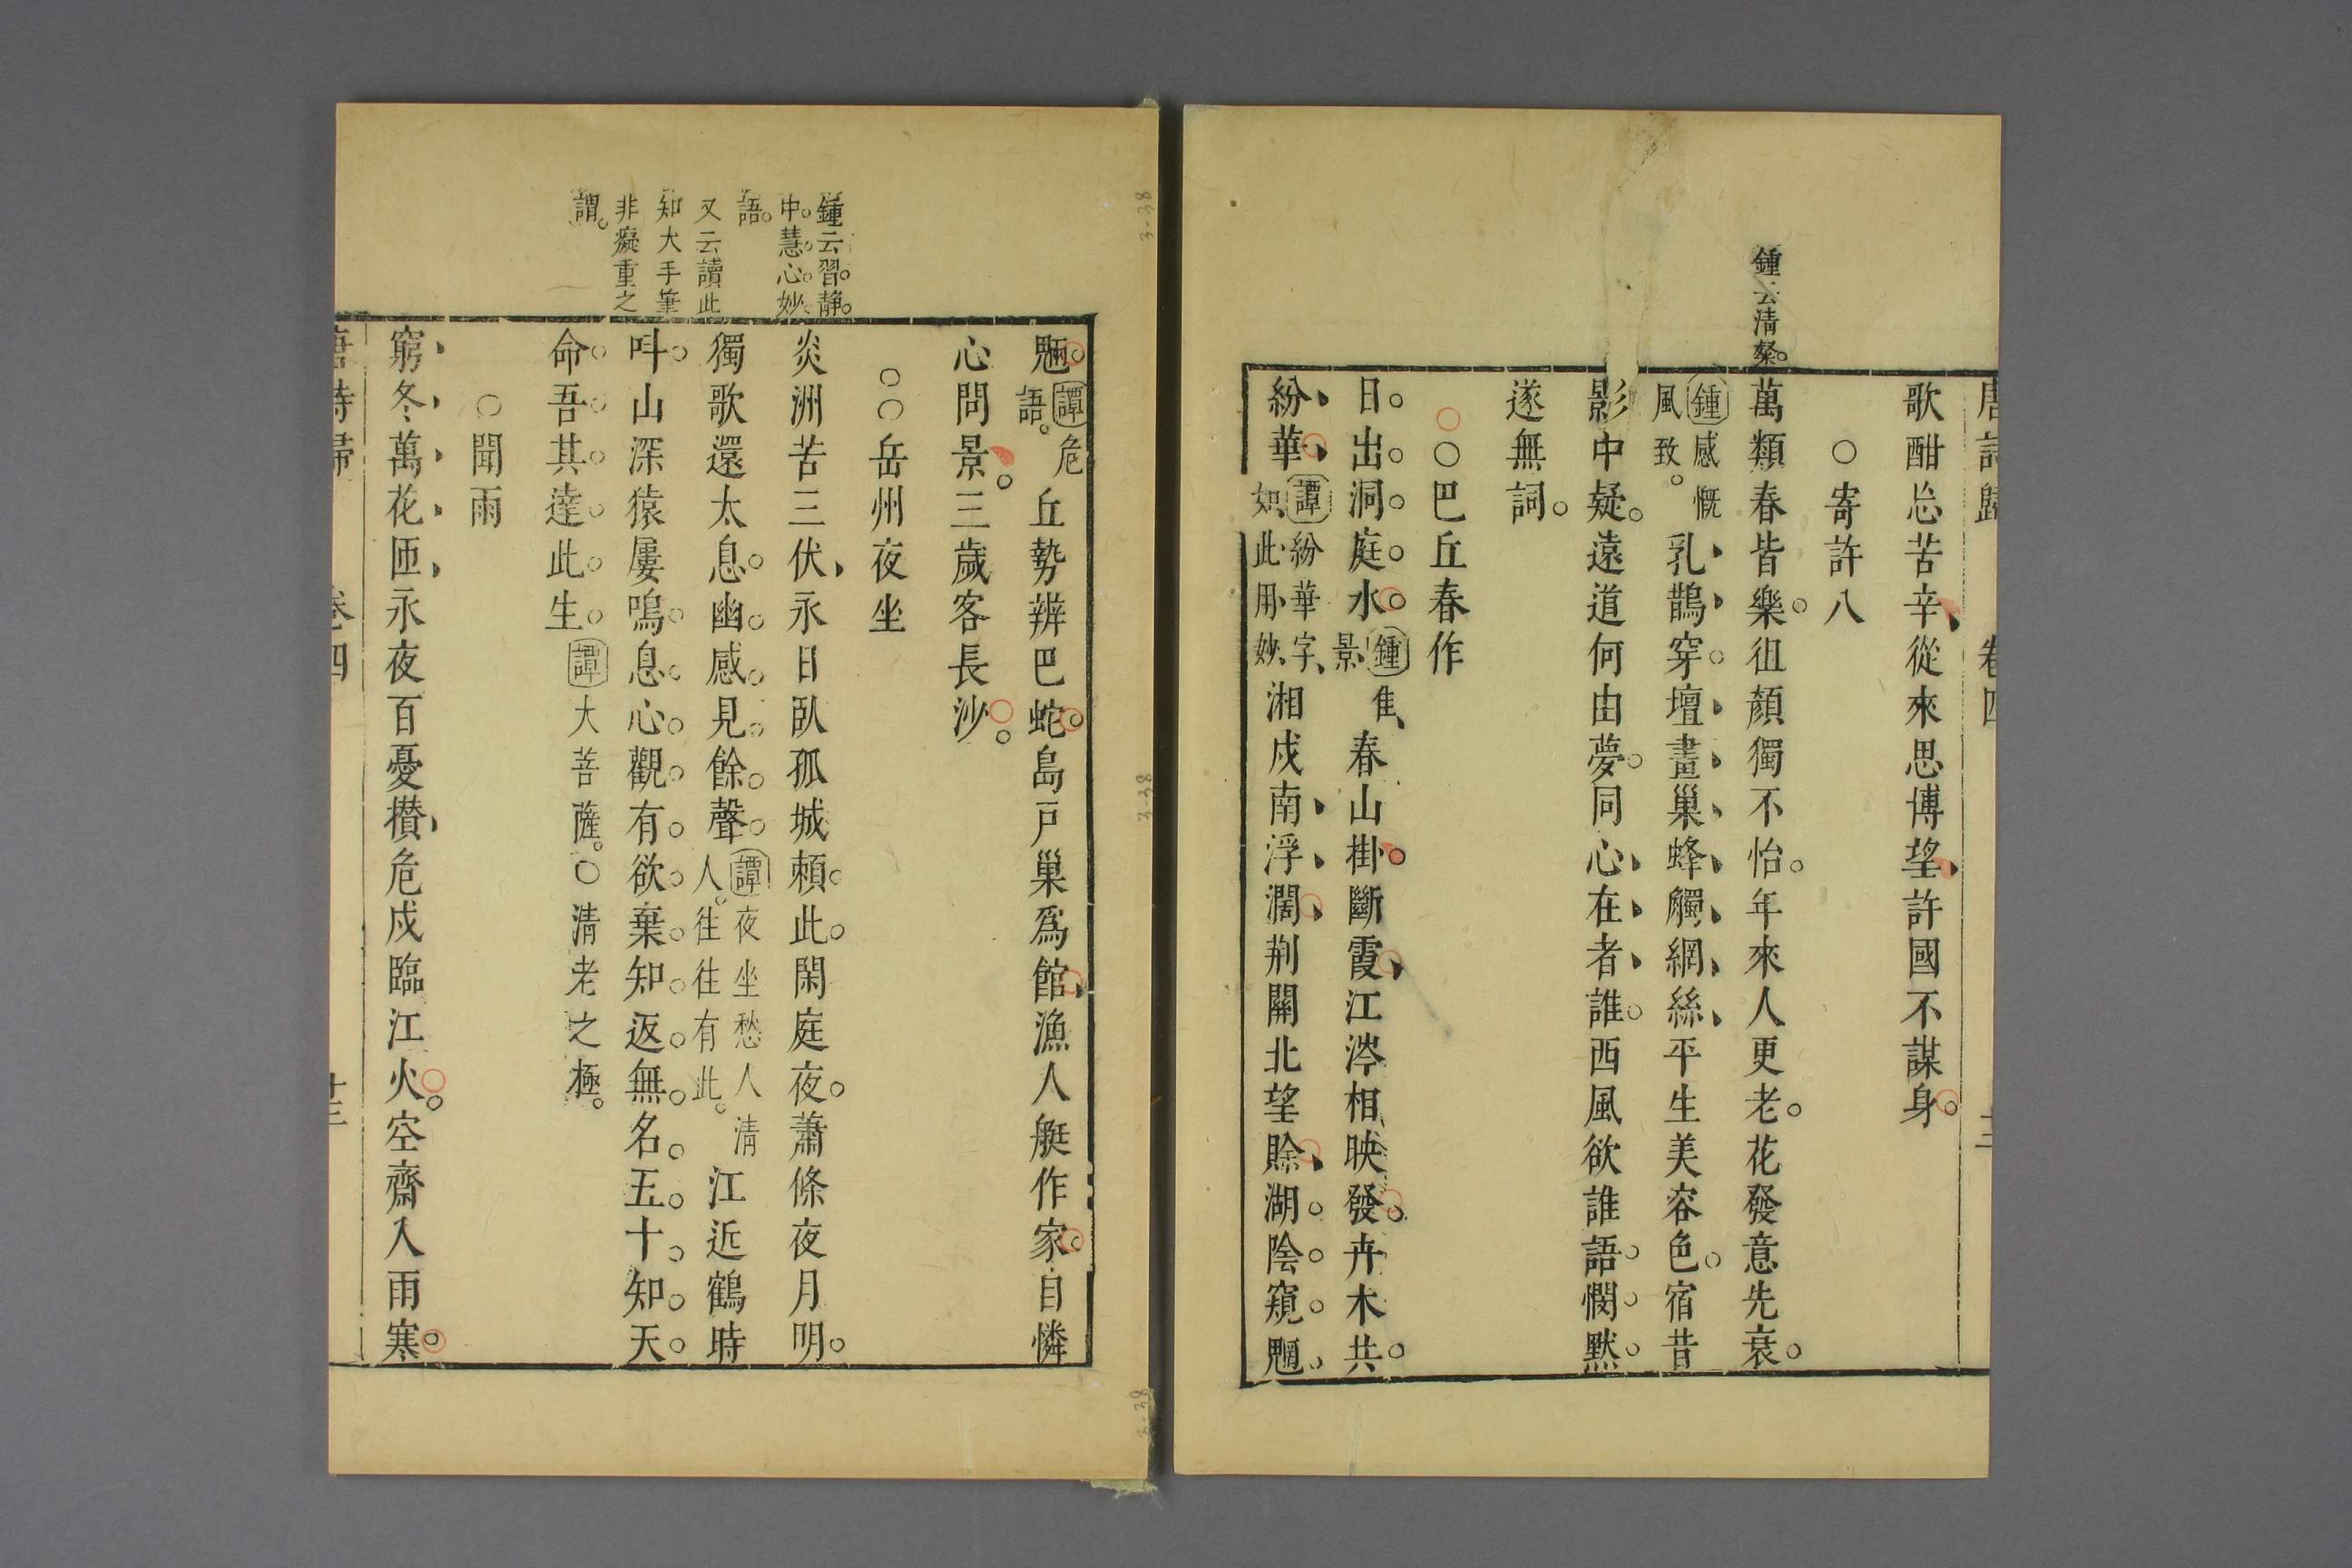 唐詩歸 卷四
歌酣忘苦辛從來思博望許國不謀身
○寄許八
鍾云清粲
萬類春皆樂徂顏獨不怡年來人更老花發意先衰
鍾感慨風致乳鵲穿壇畫巢蜂觸網絲平生美容色宿昔
影中疑遠道何由夢同心在者誰西風欲誰語憫默
遂無詞
○○巴丘春作
日出洞庭水鍾隹景春山掛斷霞江涔相映發卉木共
紛華譚紛華字如此用妙湘戍南浮濶荆關北望賒湖陰窺魍
魎譚危語丘勢辨巴蛇島戸巢爲館漁人艇作家自憐
心問景三歲客長沙
○○岳州夜坐
鍾云習静
中慧心妙
語
又云讀此
知大手筆
非癡重之
謂
炎洲苦三伏永日臥孤城頼此閑庭夜蕭條夜月明
獨歌還太息幽感見餘聲譚夜坐愁人清人往往有此江近鶴時
呌山深猿屢鳴息心觀有欲棄知返無名五十知天
命吾其達此生譚大菩薩○淸老之極
○聞雨
窮冬萬花匝永夜百憂攅危戍臨江火空齋入雨寒
唐詩歸 卷四